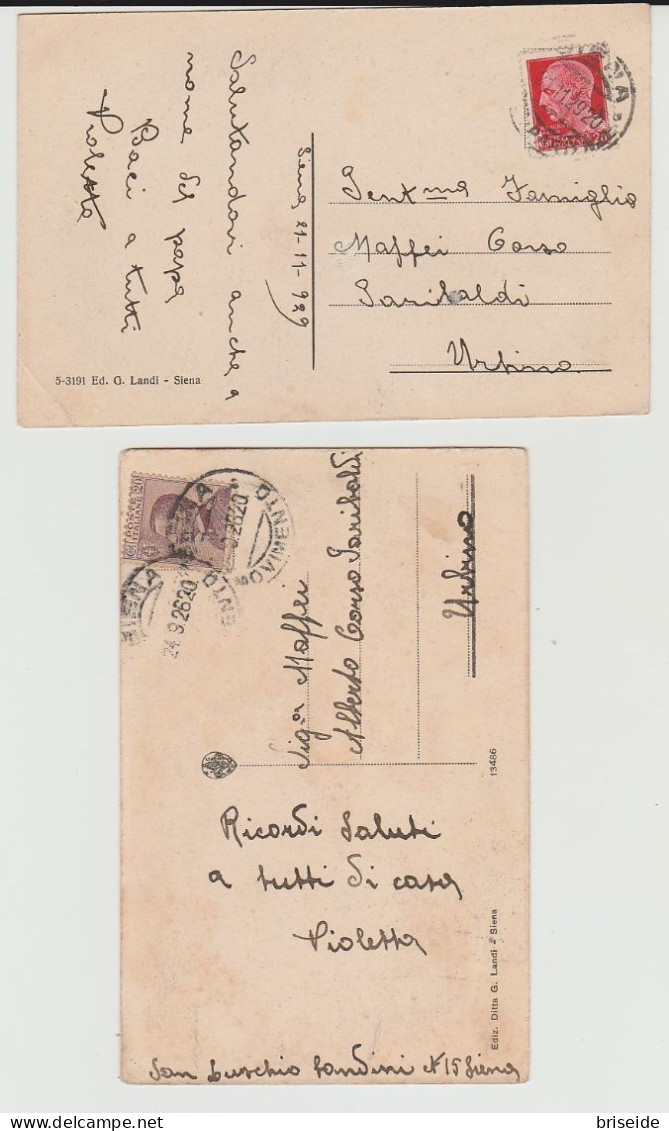 Salutandovi anche a
nome del papa
Baci a tutti
Violetta
Siena 21-11-929
SIENA
11.29.20
Gent ma Famiglia
Maffei Corso
Garibaldi
Urbino
5-3191 Ed. G. Landi - Siena
SIENA
24.9.26.20
Sig.a Maffei
Alberto Corso Garibaldi
Urbino
13486
Ricordi Saluti
a tutti di casa
Violetta
Ediz. Ditta G. Landi - Siena
San Landini N 15 Siena
Briseide